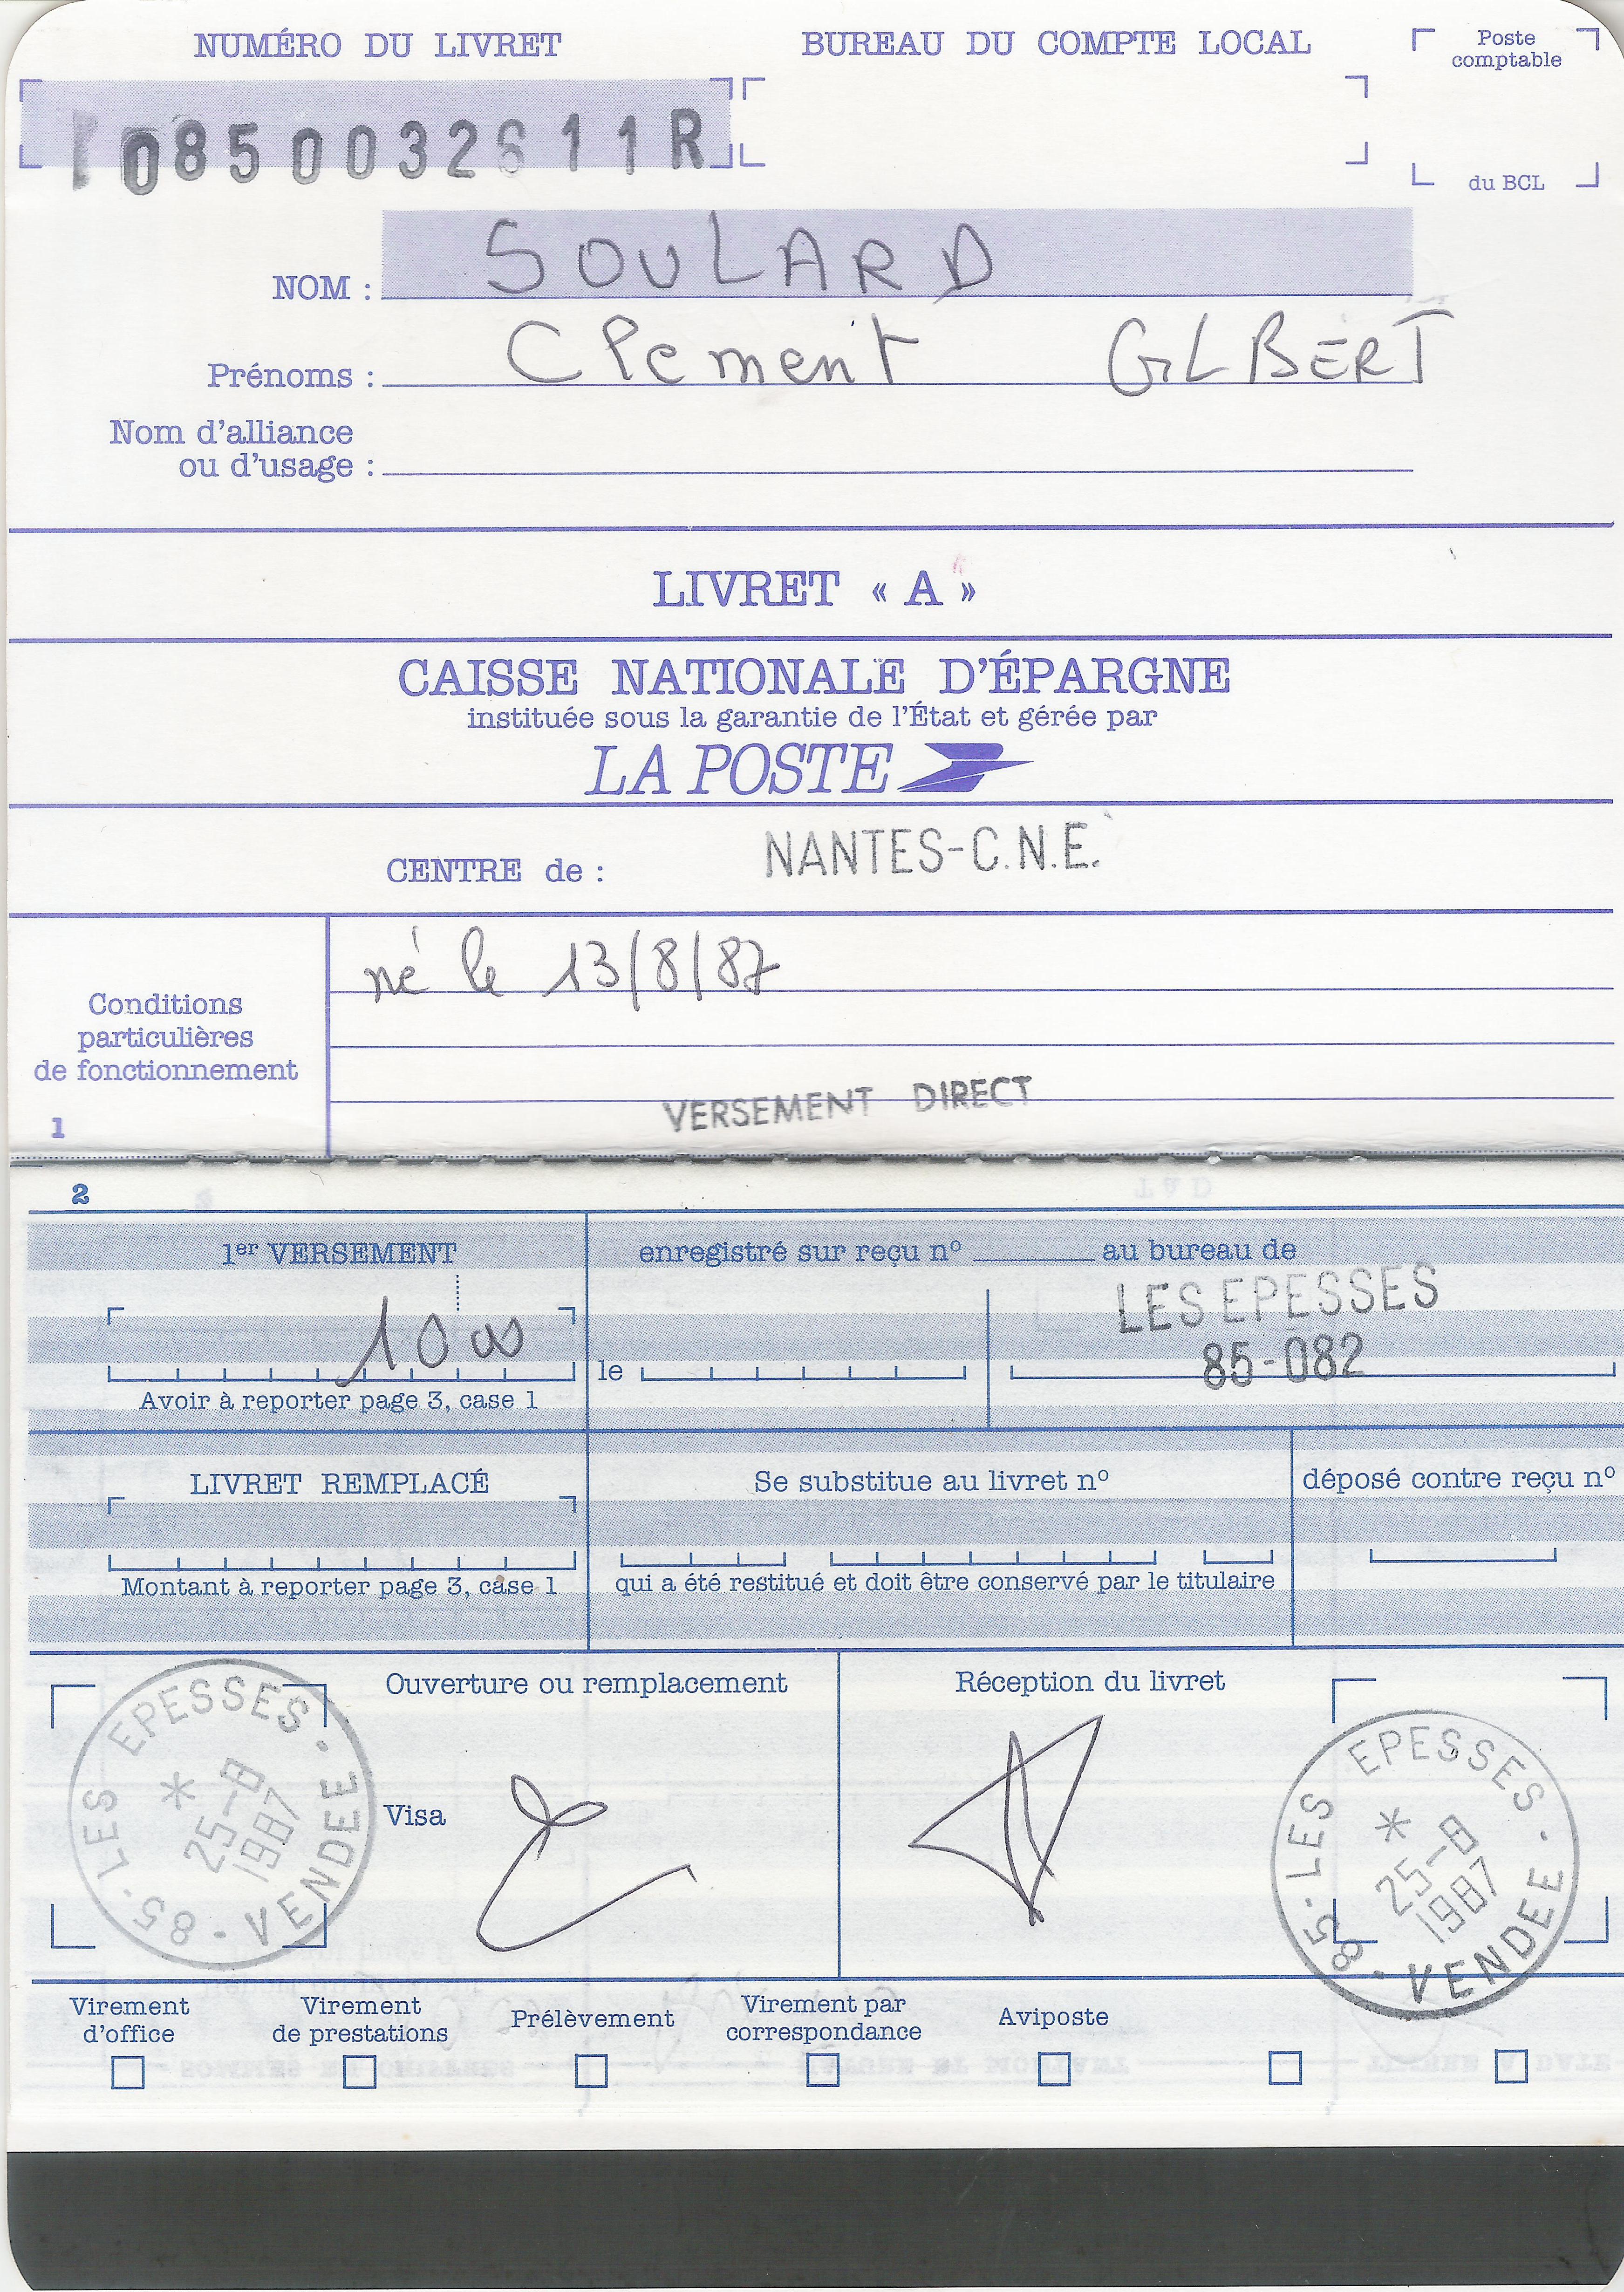 NUMÉRO DU LIVRET
BUREAU DU COMPTE LOCAL
Poste comptable
0850032611R
du BCL
NOM : SOULARD
Prénoms : Clement GILBERT
Nom d'alliance
ou d'usage :
LIVRET « A »
CAISSE NATIONALE D'ÉPARGNE
instituée sous la garantie de l'État et gérée par
LA POSTE
CENTRE de : NANTES-C.N.E.
né le 13/8/87
Conditions
particulières
de fonctionnement
VERSEMENT DIRECT
1
2
1er VERSEMENT
enregistré sur reçu nº au bureau de
LES EPESSES
10 00
le
85-082
Avoir à reporter page 3, case 1
LIVRET REMPLACÉ
Se substitue au livret nº
déposé contre reçu nº
Montant à reporter page 3, case 1
qui a été restitué et doit être conservé par le titulaire
Ouverture ou remplacement
Réception du livret
85 - LES EPESSES - VENDEE
* 25-8 1987
Visa
85 - LES EPESSES - VENDEE
* 25-8 1987
Virement d'office
Virement de prestations
Prélèvement
Virement par correspondance
Aviposte